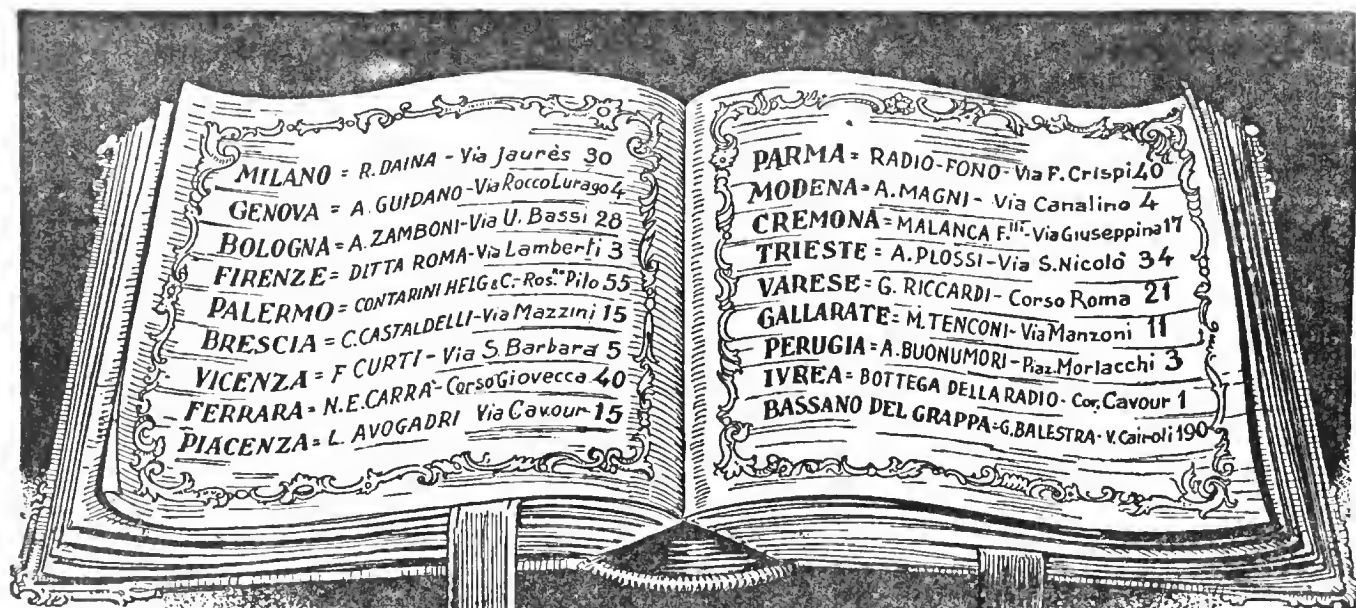 MILANO = R. DAINA - Via Jaurès 30
GENOVA = A. GUIDANO - Via Rocco Lurago 4
BOLOGNA = A. ZAMBONI - Via U. Bassi 28
FIRENZE = DITTA ROMA - Via Lamberti 3
PALERMO = CONTARINI HELG & C. - Ros.ne Pilo 55
BRESCIA = C. CASTALDELLI - Via Mazzini 15
VICENZA = F CURTI - Via S. Barbara 5
FERRARA = N.E. CARRA' - Corso Giovecca 40
PIACENZA = L. AVOGADRI Via Cavour 15
PARMA = RADIO-FONO - Via F. Crispi 40
MODENA = A. MAGNI - Via Canalino 4
CREMONA = MALANCA F.lli - Via Giuseppina 17
TRIESTE = A. PLOSSI - Via S. Nicolò 34
VARESE = G. RICCARDI - Corso Roma 21
GALLARATE = M. TENCONI - Via Manzoni 11
PERUGIA = A. BUONUMORI - Piaz. Morlacchi 3
IVREA = BOTTEGA DELLA RADIO - Cor. Cavour 1
BASSANO DEL GRAPPA = G. BALESTRA - V. Cairoli 190